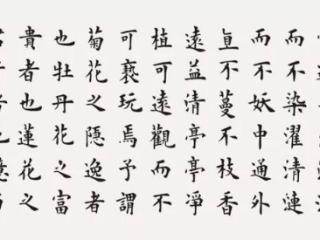 而不染濯清漣
而不妖中通外
直不蔓不枝香
遠益清亭亭淨
植可遠觀而不
可褻玩焉予謂
菊花之隱逸者
也牡丹花之富
貴者也蓮花之